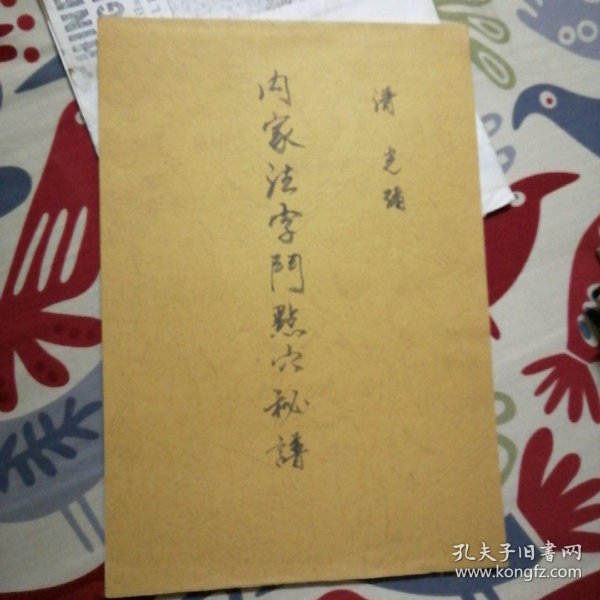 清 光绪
内家法字門點穴秘譜
孔夫子旧书网
www.kongfz.com